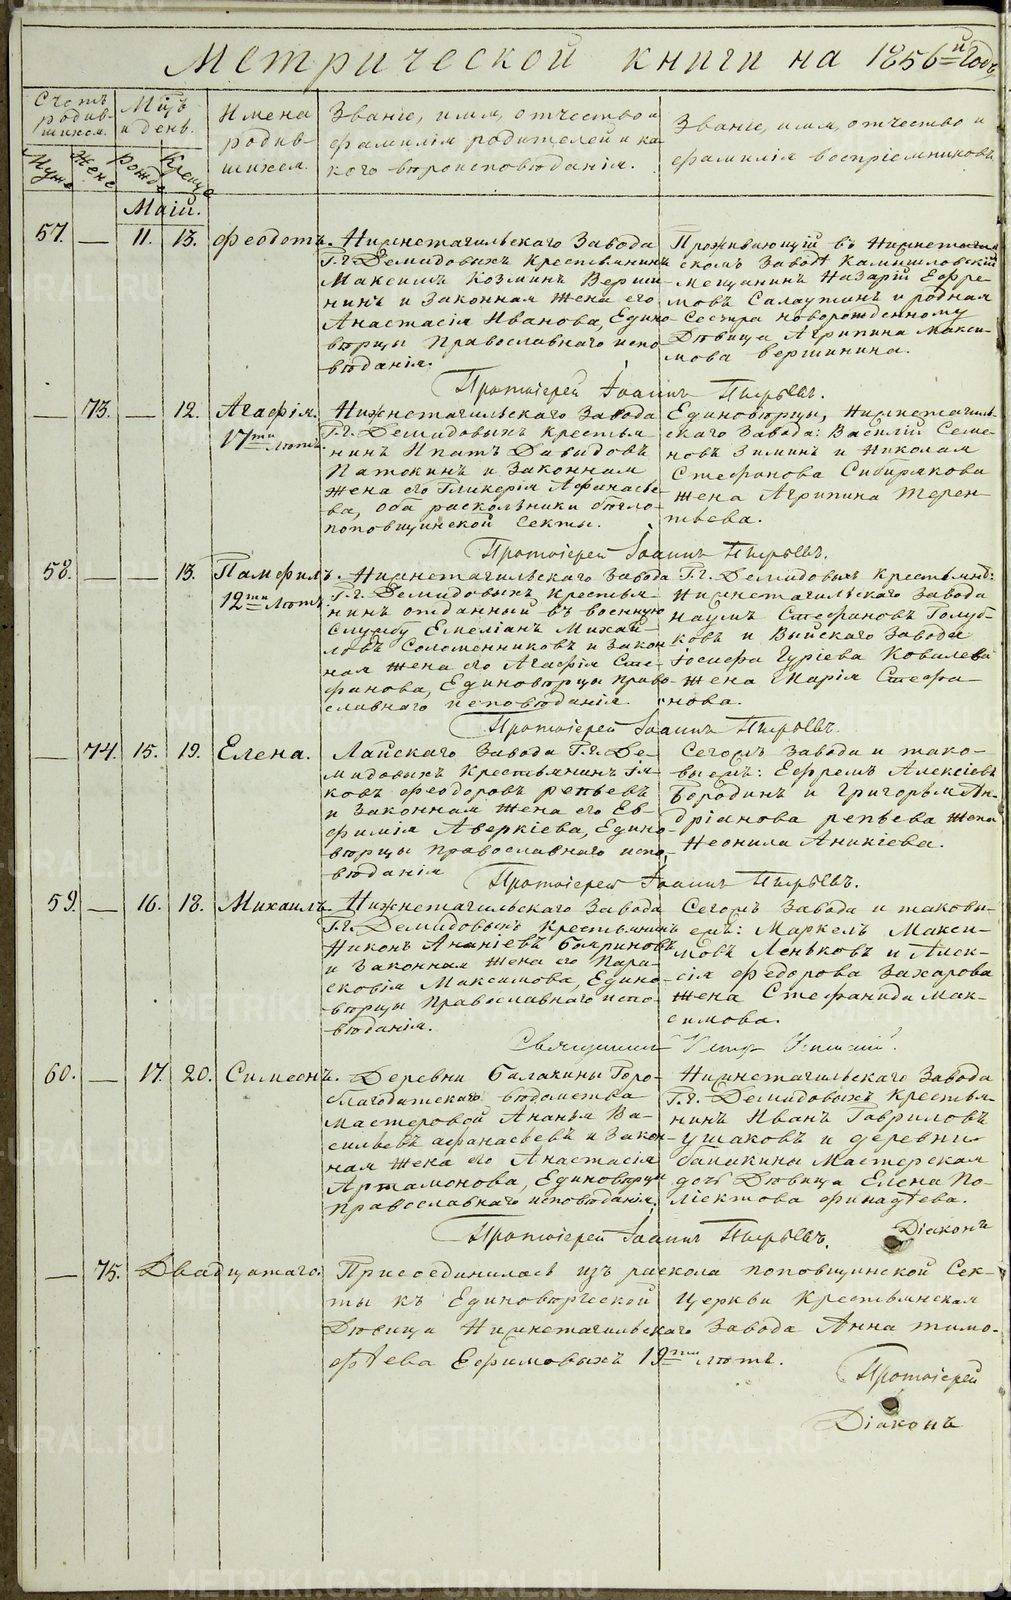 Метрической книги на 1856й годъ
Счетъ родив-
шихся.
Мцъ
и день.
Имена
родив-
шихся.
Званіе, имя, отчество и
фамилія родителей и ка
кого вѣроисповѣданія.
Званіе, имя, отчество и
фамилія воспріемниковъ
Муже
Жене
Рожде
Креще
Маій.
57. — 11. 13. Феодотъ.
Нижнетагильскаго Завода
Г.г. Демидовыхъ Крестьянинъ
Максимъ Козминъ Верши
нинъ и Законная жена его
Анастасія Иванова, Едино
вѣрцы Православнаго испо
вѣданія.
Проживающій въ Нижнетагиль
скомъ Заводѣ Камышловскій
мещанинъ Назарій Ефре
мовъ Салаутинъ и родная
Сестра новорожденному
Дѣвица Агрипина Макси-
мова Вершинина.
Протоіерей Іоаннъ Пырьевъ.
— 73. — 12. Агафія.
17ти лѣтъ
Нижнетагильскаго Завода
Г.г. Демидовыхъ крестья
нинъ Ипатъ Давыдовъ
Патокинъ и Законная
жена его Гликерія Афанасье
ва, оба раскольники бѣгло-
поповщинской Секты.
Единовѣрцы, Нижнетагиль
скаго Завода: Василій Семе
новъ Зиминъ и Николая
Стефанова Сибирякова
жена Агрипина Терен-
тьева.
Протоіерей Іоаннъ Пырьевъ.
58. — — 13. Памфилъ.
12ти лѣтъ
Нижнетагильскаго Завода
Г.г. Демидовыхъ Крестья-
нинъ отданный въ военную
Службу Емеліанъ Михай-
ловъ Соломенниковъ и Закон
ная жена его Агафія Сте
фанова, Единовѣрцы право
славнаго исповѣданія.
Г.г. Демидовыхъ крестьяне:
Нижнетагильскаго Завода
Наумъ Стефановъ Голуб-
ковъ и Выйскаго Завода
Іосифа Гуріева Ковалева
жена Марія Стефа-
нова.
Протоіерей Іоаннъ Пырьевъ.
— 74. 15. 19. Елена.
Лайскаго Завода Г.г. Де-
мидовыхъ Крестьянинъ Ія-
ковъ Феодоровъ Репьевъ
и Законная жена его Ев-
фимія Аверкіева, Едино
вѣрцы православнаго испо
вѣданія
Сегожъ Завода и тако-
выежъ: Ефремъ Алексіевъ
Бородинъ и Григорья Ан-
дріанова Репьева жена
Неонила Аникіева.
Протоіерей Іоаннъ Пырьевъ.
59. — 16. 18. Михаилъ
Нижнетагильскаго Завода
Г.г. Демидовыхъ Крестьянинъ
Никонъ Ананіевъ Бояриновъ
и Законная жена его Пара-
сковія Максимова, Едино-
вѣрцы Православнаго испо-
вѣданія.
Сегожъ Завода и таковы-
ежъ: Маркелъ Макси-
мовъ Леньковъ и Алек-
сія Федорова Захарова
жена Стефанида Мак-
симова.
Священникъ Петръ
60. — 17. 20. Симеонъ.
Деревни Балакины Горо-
благодатскаго вѣдомства
Мастеровой Ананья Ва-
сильевъ Афанасьевъ и Закон
ная жена его Анастасія
Артамонова, Единовѣрцы
Православнаго исповѣданія.
Нижнетагильскаго Завода
Г.г. Демидовыхъ Крестья-
нинъ Иванъ Гавриловъ
Ушаковъ и деревни
Балакины Мастерская
дочь Дѣвица Елена По-
ліектова Финадѣева.
Протоіерей Іоаннъ Пырьевъ.
Діаконъ
— 75. Двадцатаго.
Присоединилась изъ раскола поповщинской Сек-
ты къ Единовѣрческой Церкви Крестьянская
Дѣвица Нижнетагильскаго Завода Анна Тимо-
фѣева Ефимовыхъ 19ти лѣтъ.
Протоіерей
Діаконъ
METRIKI.GASO-URAL.RU